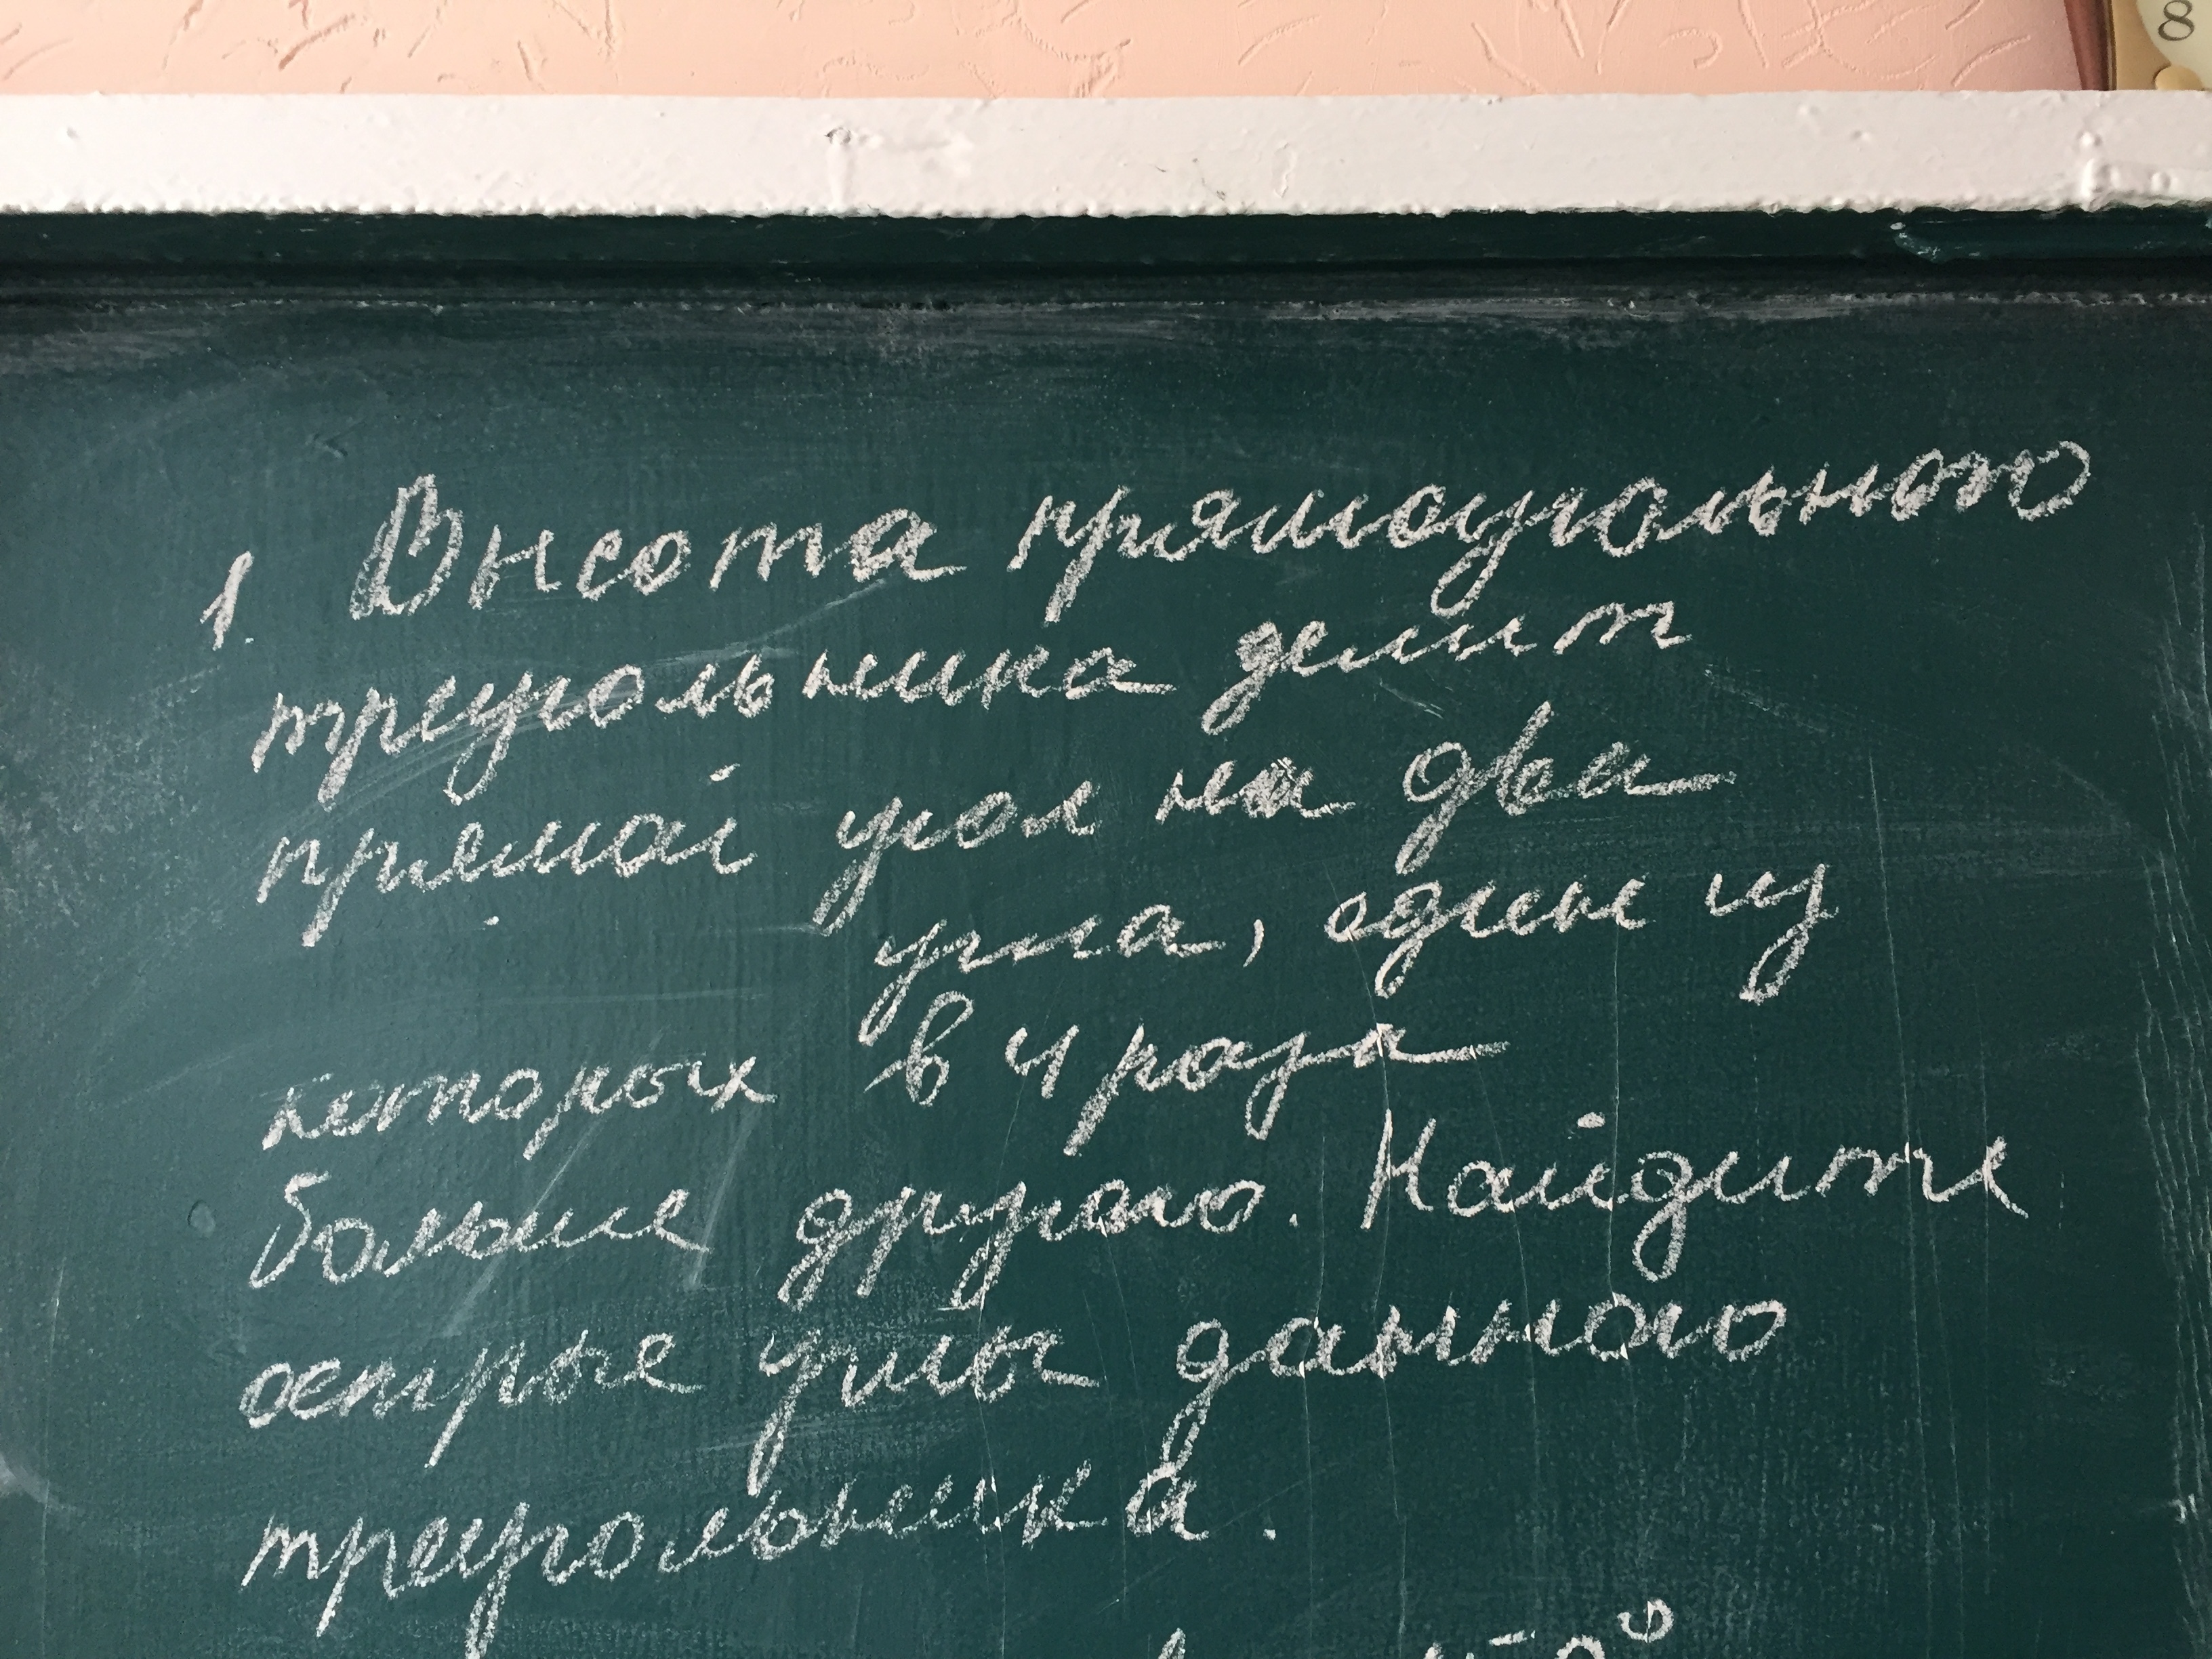 8
1. Высота прямоугольного
треугольника делит
прямой угол на два
угла, один из
которых в 4 раза
больше другого. Найдите
острые углы данного
треугольника.